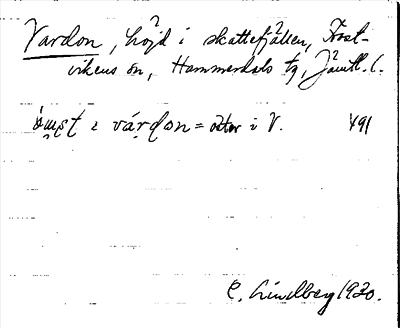 Vardon, höjd i skattefjällen, Frost-
vikens sn, Hammerdals tg, Jämtl. l.
ǫ́mst i várdon = öster i V. 491
C. Lindberg 1920.